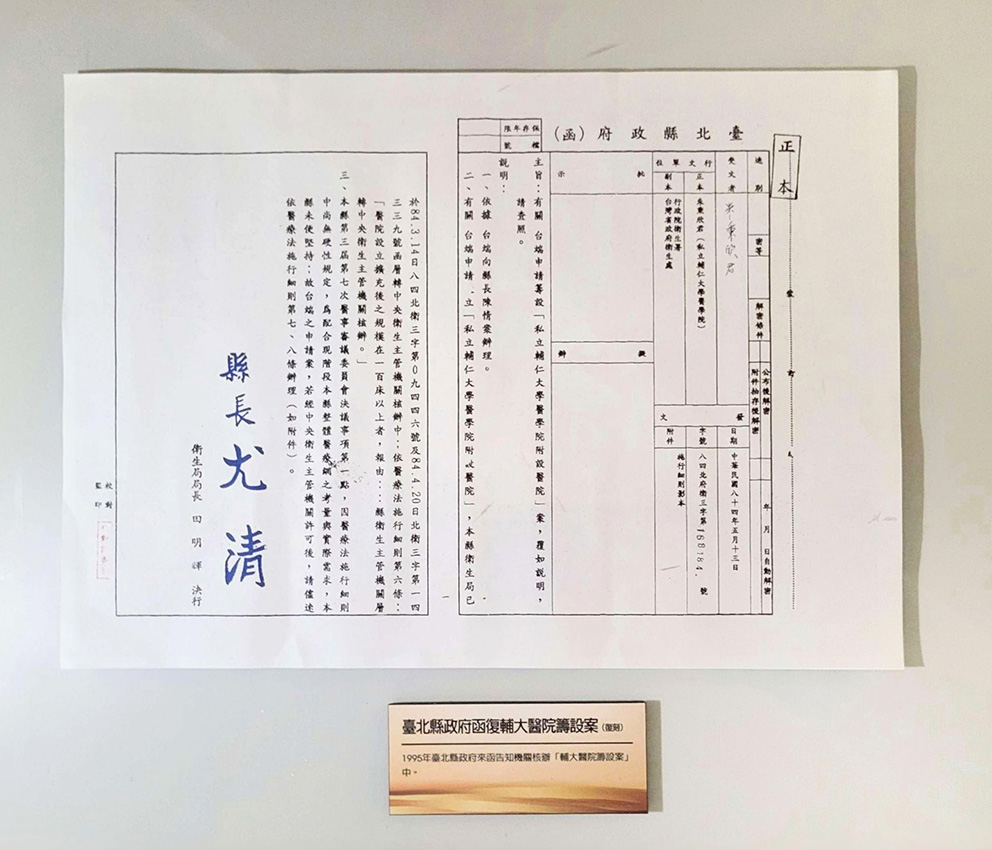 正本
裝 訂 線
臺北縣政府(函)
保存年限
檔號
速別
密等
解密條件
公布後解密
附件抽存後解密
年 月 日自動解密
受文者
朱秉欣君
行文單位
正本
朱秉欣君(私立輔仁大學醫學院)
副本
行政院衛生署
台灣省政府衛生處
發文
日期
中華民國八十四年五月十三日
字號
八四北府衛三字第168184.號
附件
施行細則影本
批示
擬辦
主旨:有關 台端申請籌設「私立輔仁大學醫學院附設醫院」案,覆如說明,
請查照。
說明:
一、依據 台端向縣長陳情案辦理。
二、有關 台端申請 立「私立輔仁大學醫學院附設醫院」,本縣衛生局已
於84.3.14日八四北衛三字第0九四四六號及84.4.20日北衛三字第一四
三三九號函層轉中央衛生主管機關核辦中;依醫療法施行細則第六條:
「醫院設立擴充後之規模在一百床以上者,報由::縣衛生主管機關層
轉中央衛生主管機關核辦。」
三、本縣第三屆第七次醫事審議委員會決議事項第一點,因醫療法施行細則
中尚無硬性規定,為配合現階段本縣整體醫療網之考量與實際需求,本
縣未便堅持;故台端之申請案,若經中央衛生主管機關許可後,請儘速
依醫療法施行細則第七、八條辦理(如附件)。
縣長 尤 清
衛生局局長 田明輝 決行
校對
監印
臺北縣政府函復輔大醫院籌設案(復刻)
1995年臺北縣政府來函告知機關核辦「輔大醫院籌設案」
中。